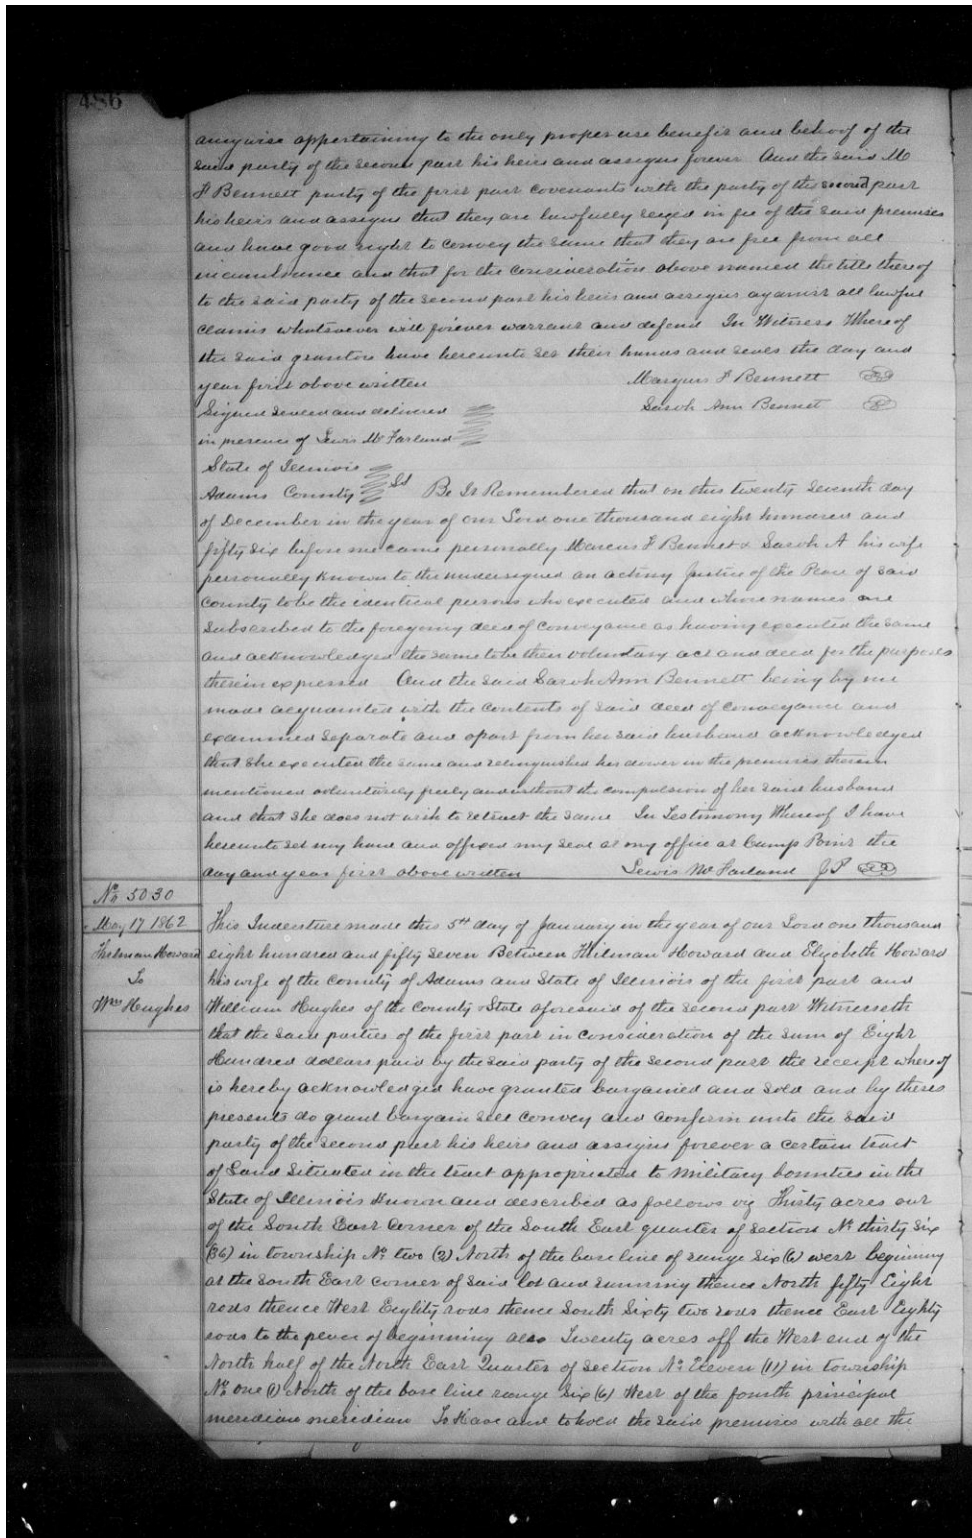 486
anywise appertaining to the only proper use benefit and behoof of the
said party of the second part his heirs and assigns forever And the said M
F Bennett party of the first part covenants with the party of the second part
his heirs and assigns that they are lawfully seized in fee of the said premises
and have good right to convey the same that they are free from all
incumbrance and that for the consideration above named the title thereof
to the said party of the second part his heirs and assigns against all lawful
claims whatsoever will forever warrant and defend In Witness Whereof
the said grantors have hereunto set their hands and seals the day and
year first above written Marquis F Bennett
Signed sealed and delivered Sarah Ann Bennet
in presence of Lewis McFarland
State of Illinois
Adams County Be It Remembered that on this twenty seventh day
of December in the year of our Lord one thousand eight hundred and
fifty six before me came personally Marcus F Bennet & Sarah A his wife
personally known to the undersigned an acting Justice of the Peace of said
county to be the identical persons who executed and whose names are
subscribed to the foregoing deed of conveyance as having executed the same
and acknowledged the same to be their voluntary act and deed for the purposes
therein expressed And the said Sarah Ann Bennett being by me
made acquainted with the contents of said deed of conveyance and
examined separate and apart from her said husband acknowledged
that she executed the same and relinquished her dower in the premises therein
mentioned voluntarily freely and without the compulsion of her said husband
and that she does not wish to retract the same In Testimony Whereof I have
hereunto set my hand and affixed my seal at my office at Camp Point the
day and year first above written Lewis McFarland J P
No 5030
May 17 1862
Thilman Howard
To
Wm Hughes
This Indenture made this 5th day of January in the year of our Lord one thousand
eight hundred and fifty seven Between Thilman Howard and Elizabeth Howard
his wife of the county of Adams and State of Illinois of the first part and
William Hughes of the County & State aforesaid of the second part Witnesseth
that the said parties of the first part in consideration of the sum of Eight
Hundred dollars paid by the said party of the second part the receipt whereof
is hereby acknowledged have granted bargained and sold and by these
presents do grant bargain sell convey and confirm unto the said
party of the second part his heirs and assigns forever a certain tract
of Land situated in the tract appropriated to military bounties in the
State of Illinois known and described as follows viz Thirty acres out
of the South East corner of the South East quarter of section No thirty six
(36) in township No two (2) North of the base line of range six (6) west beginning
at the South East corner of said lot and running thence North fifty Eight
rods thence West Eighty rods thence South Sixty two rods thence East Eighty
rods to the place of beginning also Twenty acres off the West end of the
North half of the North East Quarter of section No Eleven (11) in township
No one (1) North of the base line range Six (6) West of the fourth principal
meridian meridian To Have and to hold the said premises with all the